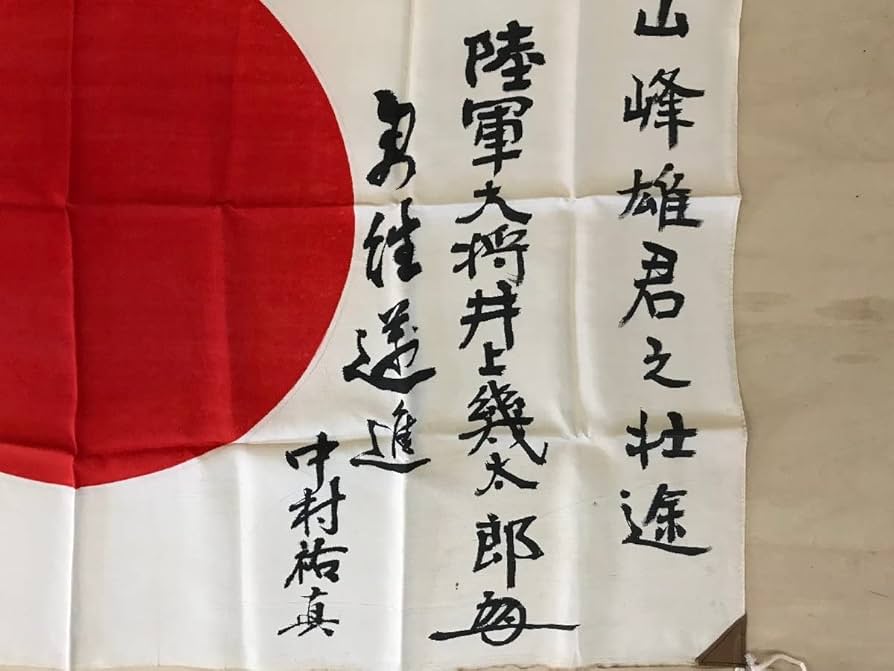 山峰雄君之壮途
陸軍大将井上幾太郎
勇往邁進
中村祐真